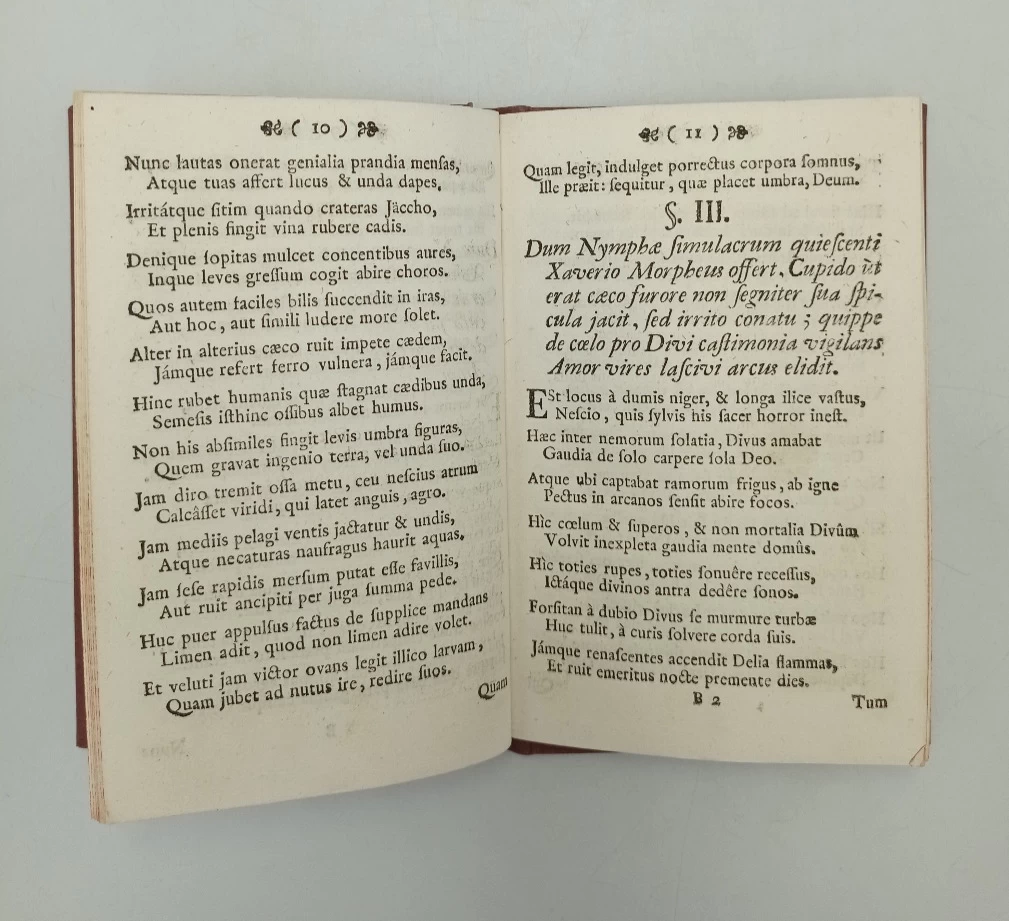 ( 10 )
Nunc lautas onerat genialia prandia menſas,
Atque tuas affert lucus & unda dapes,
Irritátque ſitim quando crateras Jäccho,
Et plenis fingit vina rubere cadis.
Denique ſopitas mulcet concentibus aures,
Inque leves greſſum cogit abire choros.
Quos autem faciles bilis ſuccendit in iras,
Aut hoc, aut ſimili ludere more ſolet.
Alter in alterius cæco ruit impete cædem,
Jámque refert ferro vulnera, jámque facit.
Hinc rubet humanis quæ ſtagnat cædibus unda,
Semeſis iſthinc oſſibus albet humus.
Non his abſimiles fingit levis umbra figuras,
Quem gravat ingenio terra, vel unda ſuo.
Jam diro tremit oſſa metu, ceu neſcius atrum
Calcâſſet viridi, qui latet anguis, agro.
Jam mediis pelagi ventis jactatur & undis,
Atque necaturas naufragus haurit aquas.
Jam ſeſe rapidis merſum putat eſſe favillis,
Aut ruit ancipiti per juga ſumma pede.
Huc puer appulſus factus de ſupplice mandans
Limen adit, quod non limen adire volet.
Et veluti jam victor ovans legit illico larvam,
Quam jubet ad nutus ire, redire ſuos.
Quam
( 11 )
Quam legit, indulget porrectus corpora ſomnus,
Ille præit: ſequitur, quæ placet umbra, Deum.
§. III.
Dum Nymphæ ſimulacrum quieſcenti
Xaverio Morpheus offert, Cupido ut
erat cæco furore non ſegniter ſua ſpi-
cula jacit, ſed irrito conatu; quippe
de cœlo pro Divi caſtimonia vigilans
Amor vires laſcivi arcus elidit.
ESt locus à dumis niger, & longa ilice vaſtus,
Neſcio, quis ſylvis his ſacer horror ineſt.
Hæc inter nemorum ſolatia, Divus amabat
Gaudia de ſolo carpere ſola Deo.
Atque ubi captabat ramorum frigus, ab igne
Pectus in arcanos ſenſit abire focos.
Hìc cœlum & ſuperos, & non mortalia Divûm
Volvit inexpleta gaudia mente domûs.
Hìc toties rupes, toties ſonuêre receſſus,
Ictáque divinos antra dedêre ſonos.
Forſitan à dubio Divus ſe murmure turbæ
Huc tulit, à curis ſolvere corda ſuis.
Jámque renaſcentes accendit Delia flammas,
Et ruit emeritus nocte premente dies.
B 2
Tum